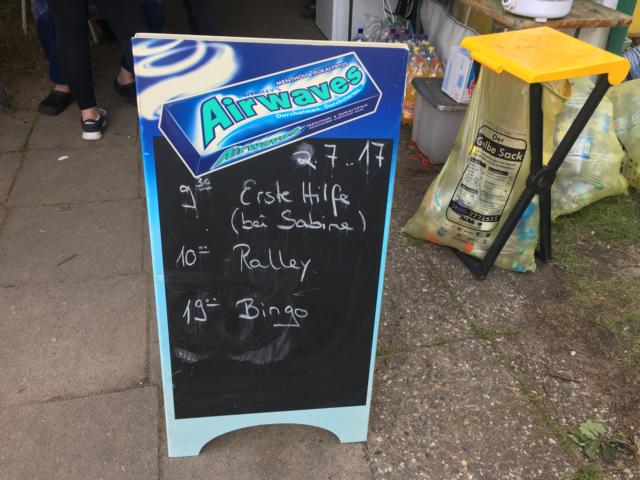 MENTHOL & EUKALYPTUS
Airwaves
Durchatmen. Durchstarten
Airwaves
2.7..17
9³⁰ Erste Hilfe
(bei Sabine)
10⁻⁻ Ralley
19⁻⁻ Bingo
Der
Gelbe Sack